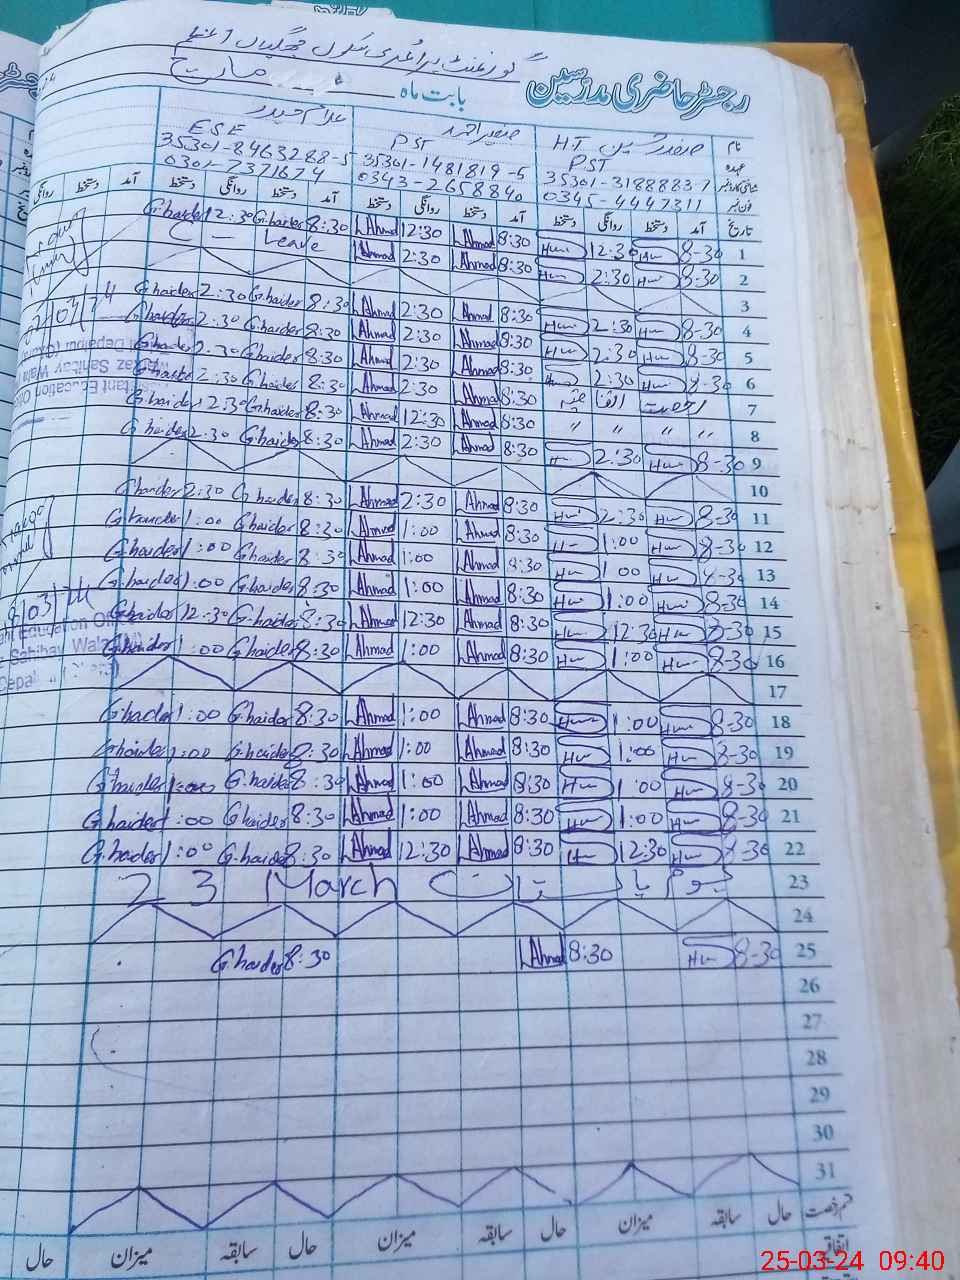 گورنمنٹ پرائمری سکول
رجسٹر حاضری مدرسین بابت ماہ مارچ
نام صفدر حسین HT صغیر احمد غلام حیدر
عہدہ PST PST ESE
شناختی کارڈ نمبر 35301-3188883-7 35301-1481819-5 35301-8463288-5
فون نمبر 0345-4447311 0343-2658840 0301-7371674
تاریخ آمد دستخط روانگی دستخط آمد دستخط روانگی دستخط آمد دستخط روانگی دستخط آمد دستخط روانگی
1 8-30 Hun 12:30 Hun 8:30 LAhmad 12:30 LAhmad 8:30 G.haider 12:30 G.haider
2 8-30 Hun 2:30 Hun 8:30 LAhmad 2:30 LAhmad C - Leave
3
4 8-30 Hun 2:30 Hun 8:30 LAhmad 2:30 LAhmad 8:30 G.haider 2:30 G.haider
5 8-30 Hun 2:30 Hun 8:30 LAhmad 2:30 LAhmad 8:30 G.haider 2:30 G.haider
6 8-30 Hun 2:30 Hun 8:30 LAhmad 2:30 LAhmad 8:30 G.haider 2:30 G.haider
7 رخصت اتفاقیہ 8:30 LAhmad 2:30 LAhmad 8:30 G.haider 2:30 G.haider
8 〃 〃 〃 〃 8:30 LAhmad 12:30 LAhmad 8:30 G.haider 2:30 G.haider
9 8-30 Hun 2:30 Hun 8:30 LAhmad 2:30 LAhmad 8:30 G.haider 2:30 G.haider
10
11 8-30 Hun 2:30 Hun 8:30 LAhmad 2:30 LAhmad 8:30 G.haider 2:30 G.haider
12 8-30 Hun 1:00 Hun 8:30 LAhmad 1:00 LAhmad 8:30 G.haider 1:00 G.haider
13 8-30 Hun 1:00 Hun 8:30 LAhmad 1:00 LAhmad 8:30 G.haider 1:00 G.haider
14 8-30 Hun 1:00 Hun 8:30 LAhmad 1:00 LAhmad 8:30 G.haider 1:00 G.haider
15 8-30 Hun 12:30 Hun 8:30 LAhmad 12:30 LAhmad 8:30 G.haider 12:30 G.haider
16 8-30 Hun 1:00 Hun 8:30 LAhmad 1:00 LAhmad 8:30 G.haider 1:00 G.haider
17
18 8-30 Hun 1:00 Hun 8:30 LAhmad 1:00 LAhmad 8:30 G.haider 1:00 G.haider
19 8-30 Hun 1:00 Hun 8:30 LAhmad 1:00 LAhmad 8:30 G.haider 1:00 G.haider
20 8-30 Hun 1:00 Hun 8:30 LAhmad 1:00 LAhmad 8:30 G.haider 1:00 G.haider
21 8-30 Hun 1:00 Hun 8:30 LAhmad 1:00 LAhmad 8:30 G.haider 1:00 G.haider
22 8-30 Hun 12:30 Hun 8:30 LAhmad 12:30 LAhmad 8:30 G.haider 1:00 G.haider
23 یوم پاکستان 23 March
24
25 8-30 Hun 8:30 LAhmad 8:30 G.haider
26
27
28
29
30
31
قسم رخصت حال سابقہ میزان حال سابقہ میزان حال سابقہ میزان حال
اتفاقیہ
25-03-24 09:40